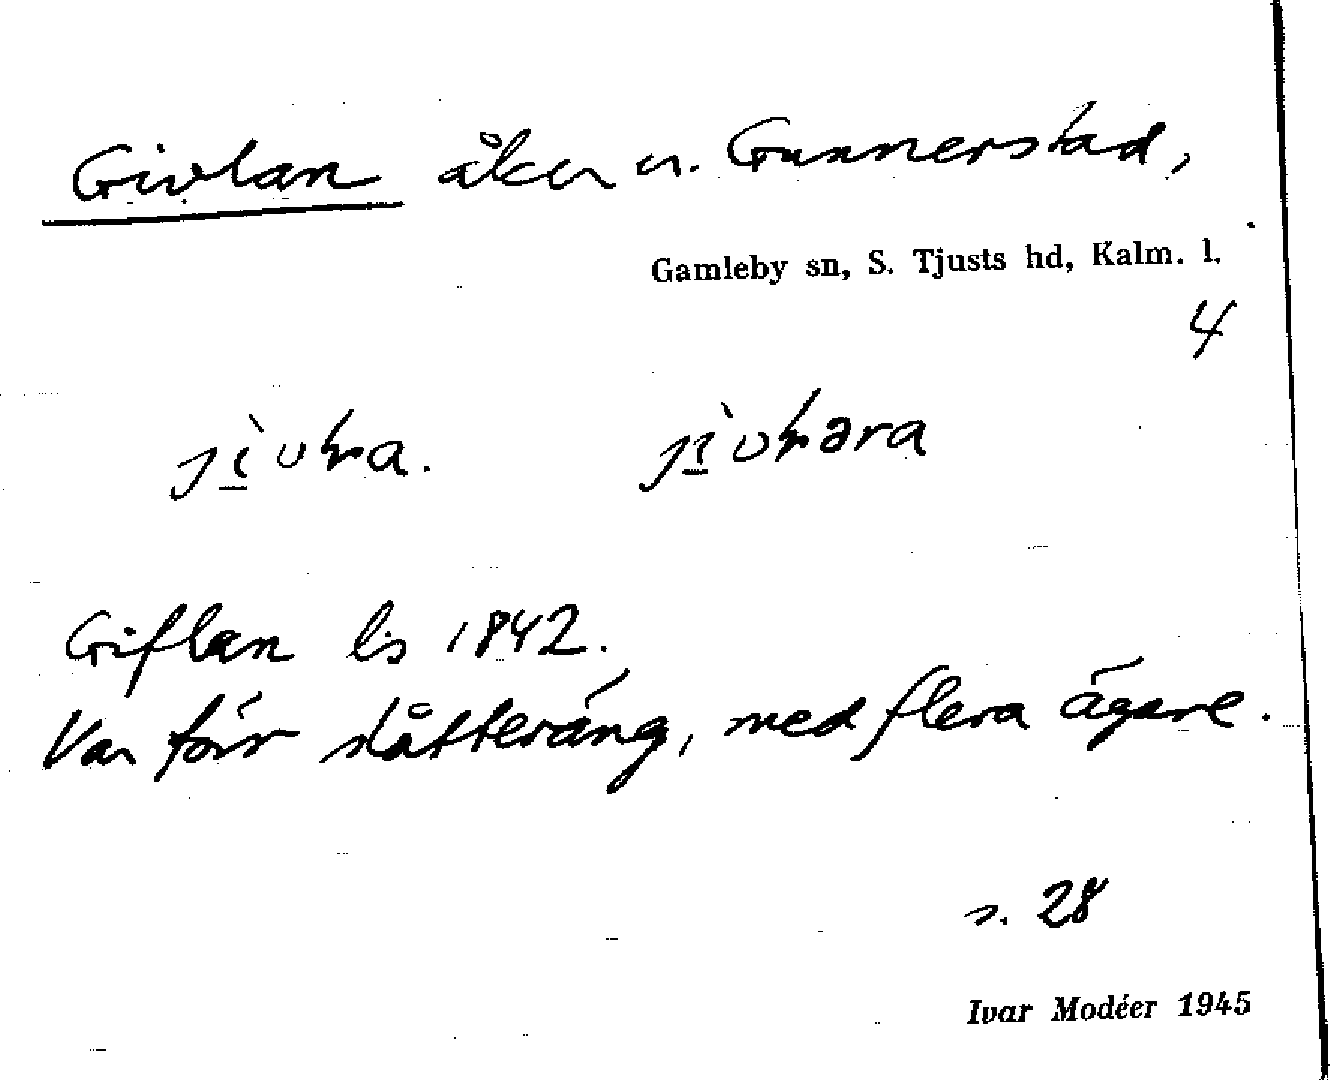 Givlan åker n. Gunnerstad,
Gamleby sn, S. Tjusts hd, Kalm. l.
4
Giflan ls 1842.
Var förr slåtteräng, med flera ägare.
s. 28
Ivar Modéer 1945